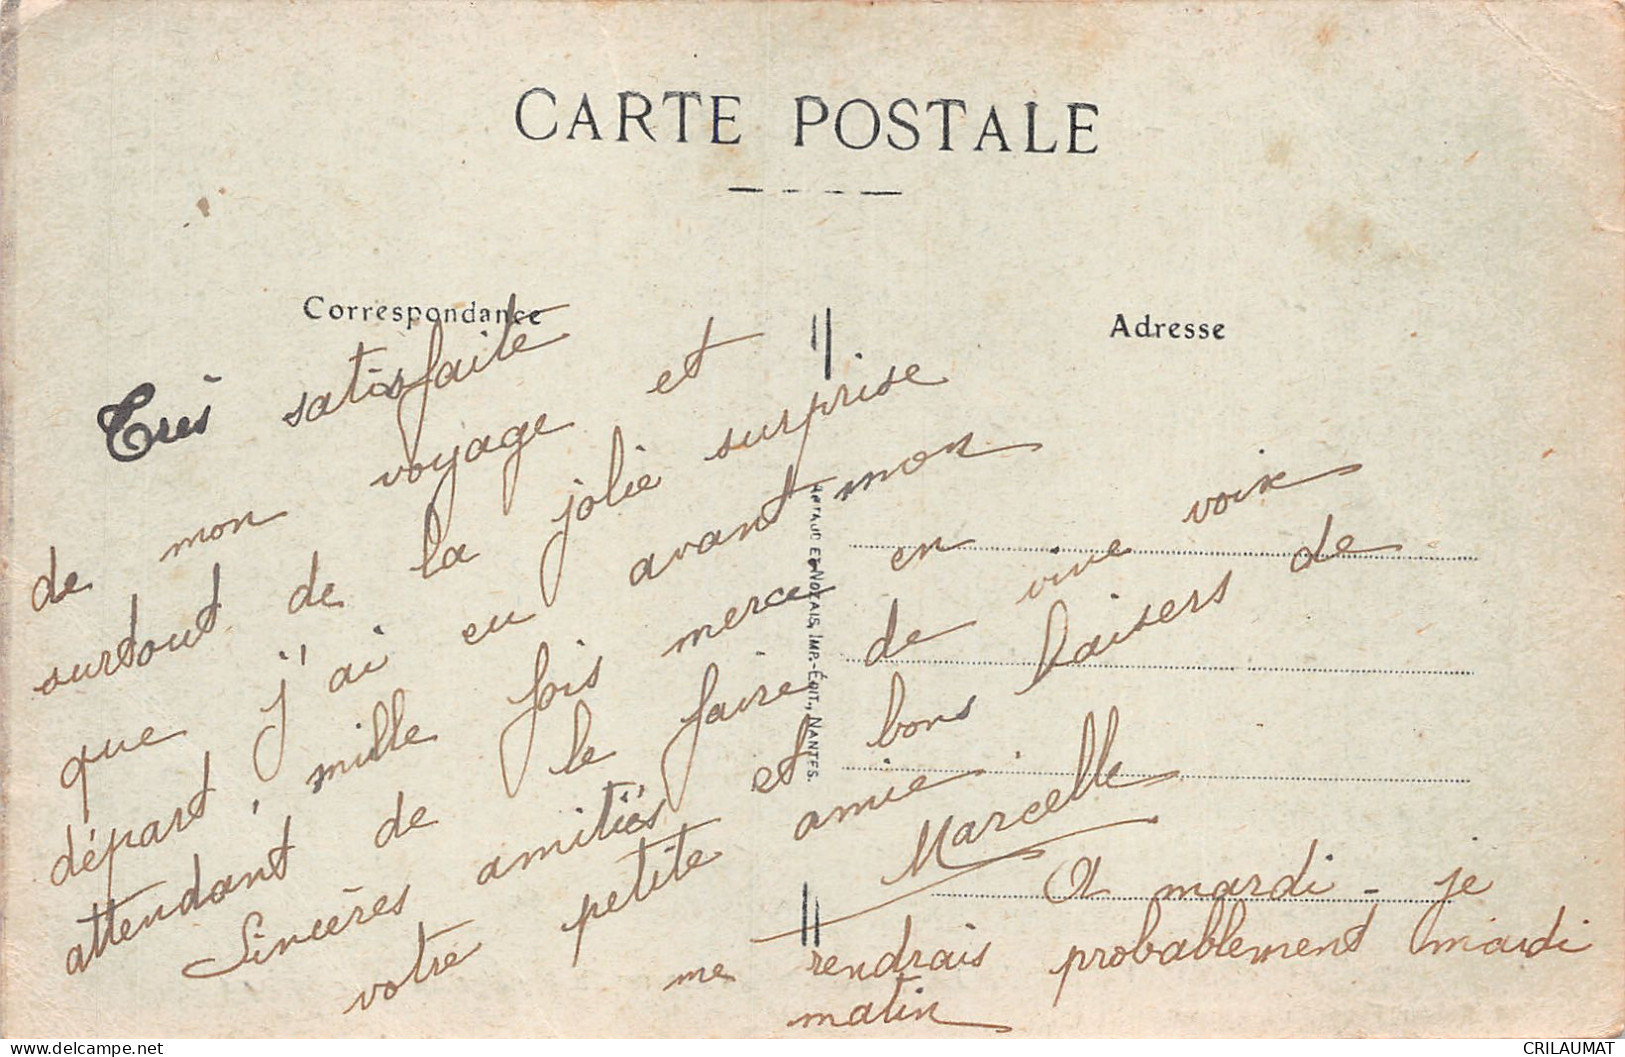 CARTE POSTALE
Correspondance
Adresse
Très satisfaite
de mon voyage et
surtout de la jolie surprise
que j'ai eu avant mon
départ, mille fois merci en
attendant de le faire de vive voix
Sincères amitiés et bons baisers de
votre petite amie.
Marcelle
A mardi - je
me rendrais probablement mardi
matin
ARTAUD ET NOZAIS, IMP.-ÉDIT., NANTES.
CRILAUMAT